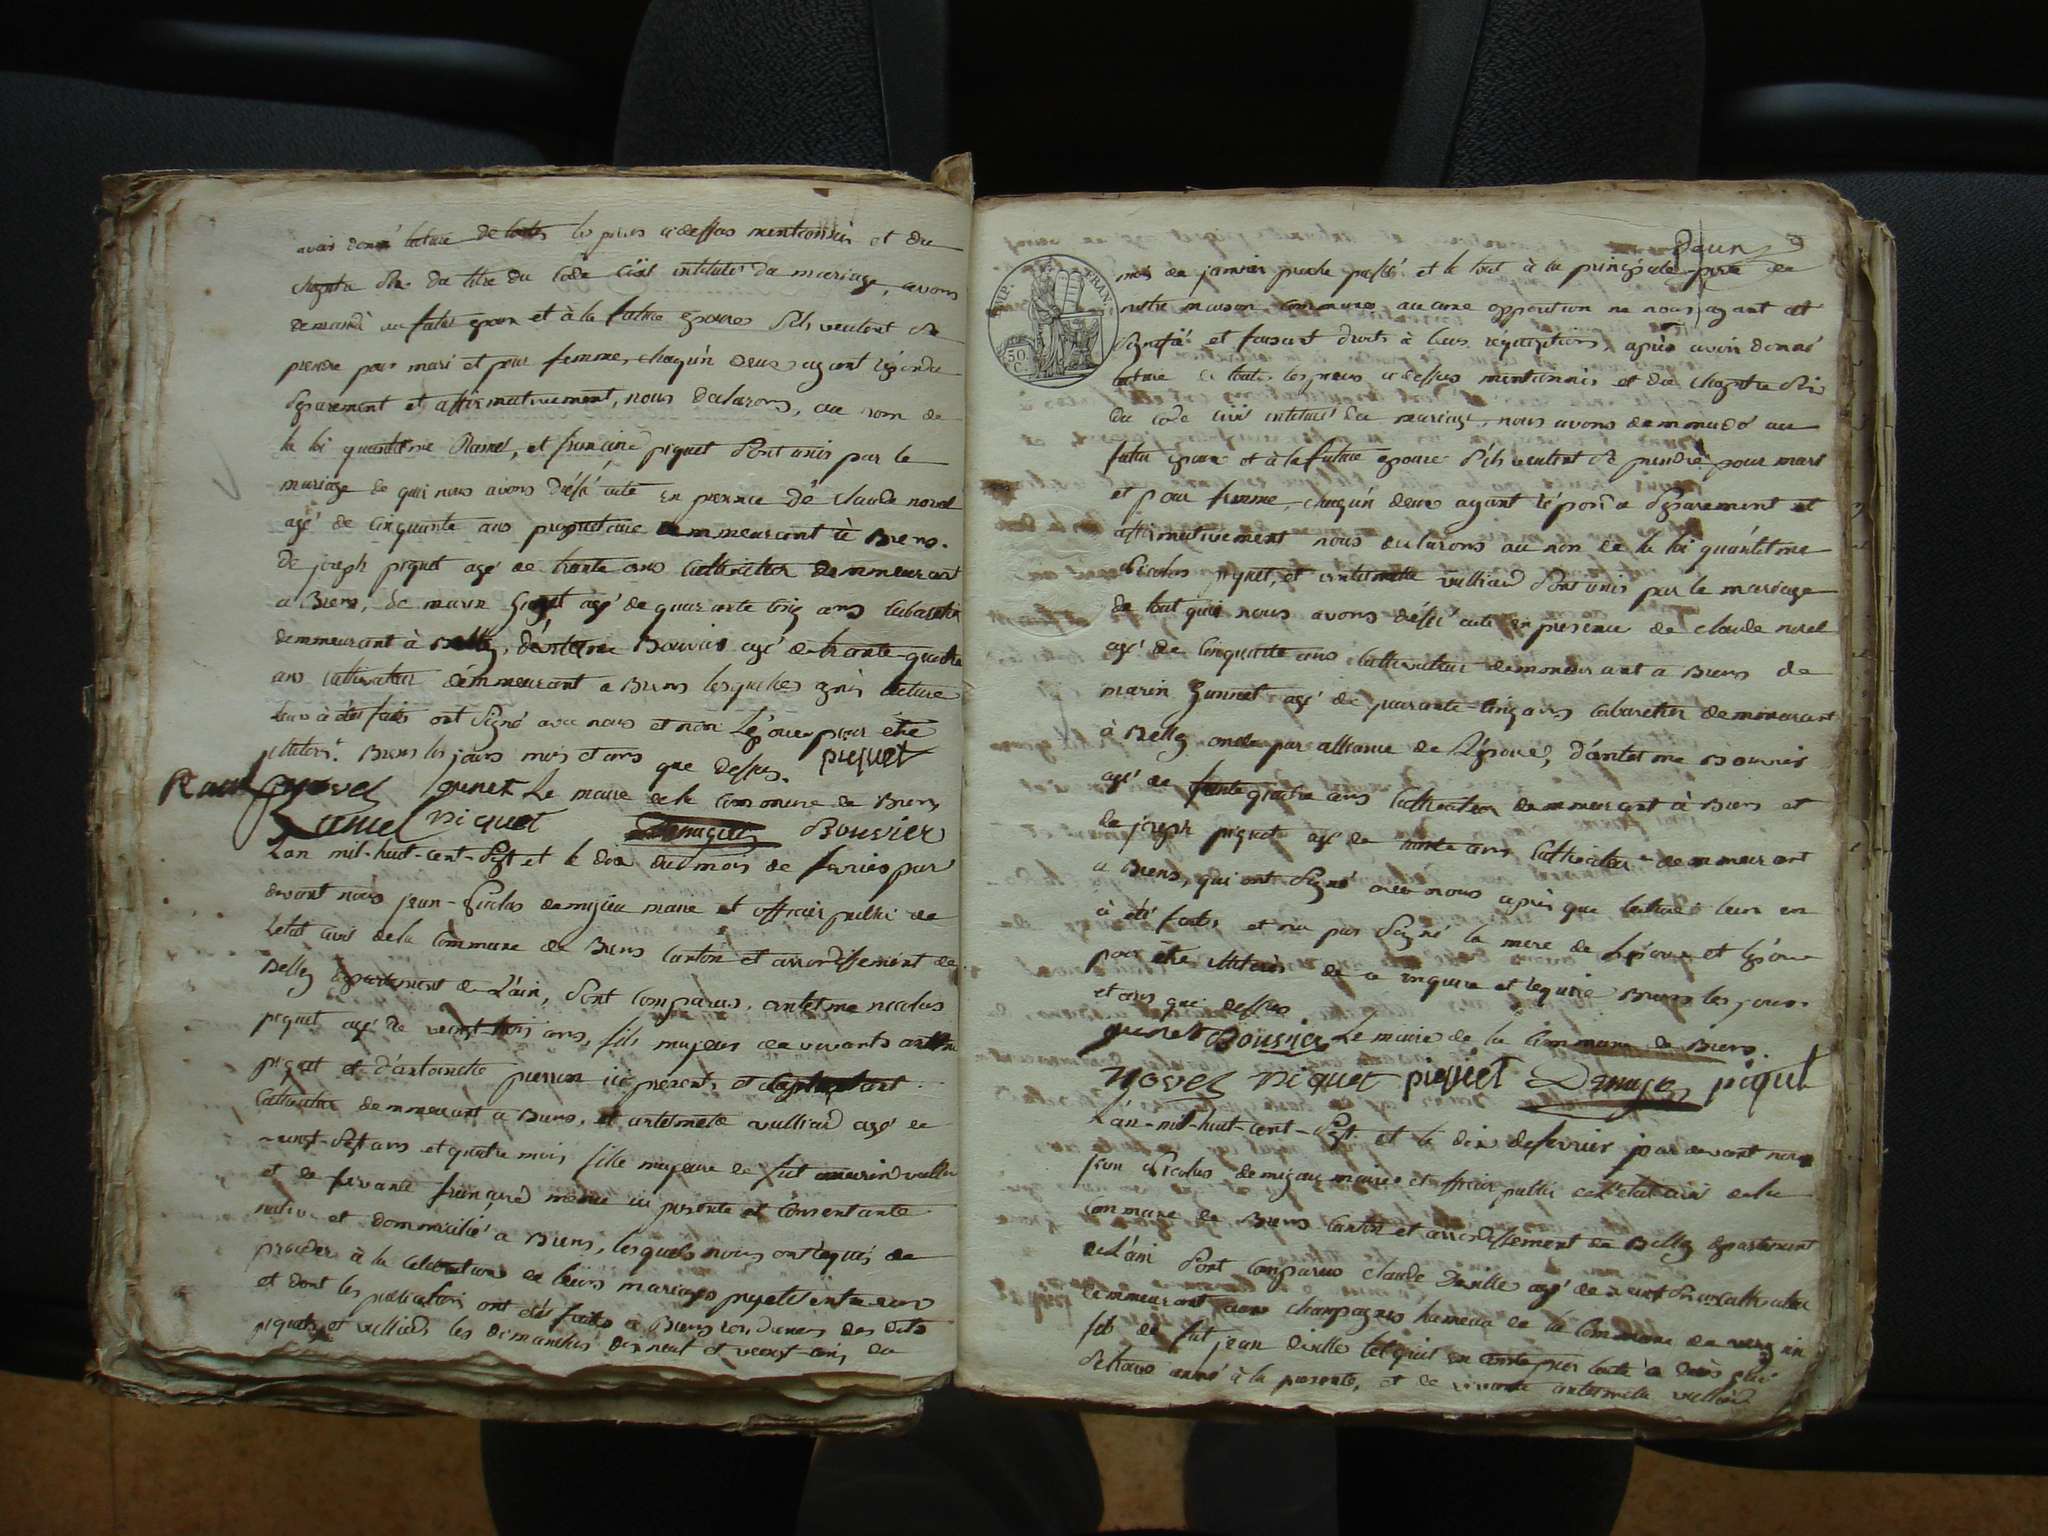 avoir donné lecture de toutes les pieces cidessus mentionnés et du
chapitre Six du titre du Code Civil intitulé du mariage, avons
demandé au futur epoux et à la future epouse s'ils veulent se
prendre pour mari et pour femme, chaqu'un deux ayant répondu
séparement et affirmativement, nous declarons, au nom de
la loi quantelme Ramel, et francoise piquet sont unis par le
mariage de quoi nous avons dréssé acte en présence de claude novel
agé de cinquante ans propriétaire demmeurant à Brens.
de joseph piquet agé de trante ans cultivateur demmeurant
a Brens, de marin agé de quarante cinq ans cabaretier
demmeurant à Belley, d'antelme Bouvier agé de trante-quatre
ans cultivateur demmeurant a Brens lesquelles après lecture
leur à été faite ont signé avec nous et non L'épouse pour etre
Brens les jours mois et ans que dessus. piquet
novel Le maire de la commune de Brens
Ramel piquet Demigieu Bouvier
L'an mil-huit-cent-sept et le dix du mois de fevrier par
devant nous jean-Nicolas demigieu maire et officier public de
L'etat civil de la Commune de Brens canton et arrondissement de
Belley département de L'ain, sont comparus, antelme nicolas
piquet agé de veingt-trois ans, fils majeur de vivants antelme
piquet et d'antoinette perrin ici présents et
cultivateur demmeurant a Brens, et antelmete vulliard agé de
veingt-sept ans et quatre mois fille majeure de fut marin vulliard
et de vivante françoise ici présente et consentante
native et dommicilié a Brens, lesquels nous ont requis de
proceder à la célébration de leurs mariage projeté entre eux
et dont les publications ont étés faites a Brens des dits
piquet et vulliard les dimanches dix neuf et veingt-cinq du
Deux 9
REP. FRAN.
50 C.
mois de janvier proche passé et le tout à la principale porte de
notre maison commune, aucune opposition ne nous ayant été
signifié et faisant droits à leurs réquisitions, après avoir donné
lecture de toutes les pieces cidessus mentionnés et du chapitre Six
du code civil intitulé du mariage, nous avons demmandé au
futur epoux et à la future epouse s'ils veulent se prendre pour mari
et pour femme, chaqu'un deux ayant répondu séparement et
affirmativement nous declarons au non de la loi quantelme
Nicolas piquet, et antelmete vulliard sont unis par le mariage
de tout quoi nous avons dréssé acte en presence de claude novel
agé de cinquante ans cultivateur demmeurant a Brens de
marin agé de quarante-cinq ans cabaretier demmeurant
à Belley oncle par alliance de L'épouse, d'antelme Bouvier
agé de trante quatre ans cultivateur demmeurant à Brens et
de joseph piquet agé de trante ans cultivateur demmeurant
a Brens, qui ont signé avec nous après que lecture leur en
à été faite et n'a pas signé la mere de L'épouse et L'épouse
pour etre de ce enquis et requise Brens les jours
et ans que dessus
Bouvier Le maire de la Commune de Brens.
novel piquet piquet Demigieu piquet
L'an-mil-huit-cent-sept et le dix de fevrier par devant nous
jean Nicolas demigieu maire et officier public de L'etat civil de la
commune de Brens canton et arrondissement de Belley département
de L'ain sont comparus claude Deville agé de veingt cultivateur
demmeurant champagnes hameau de la commune de
fils de fut jean deville
annexé à la presente, et de vivante antelmete vulliard